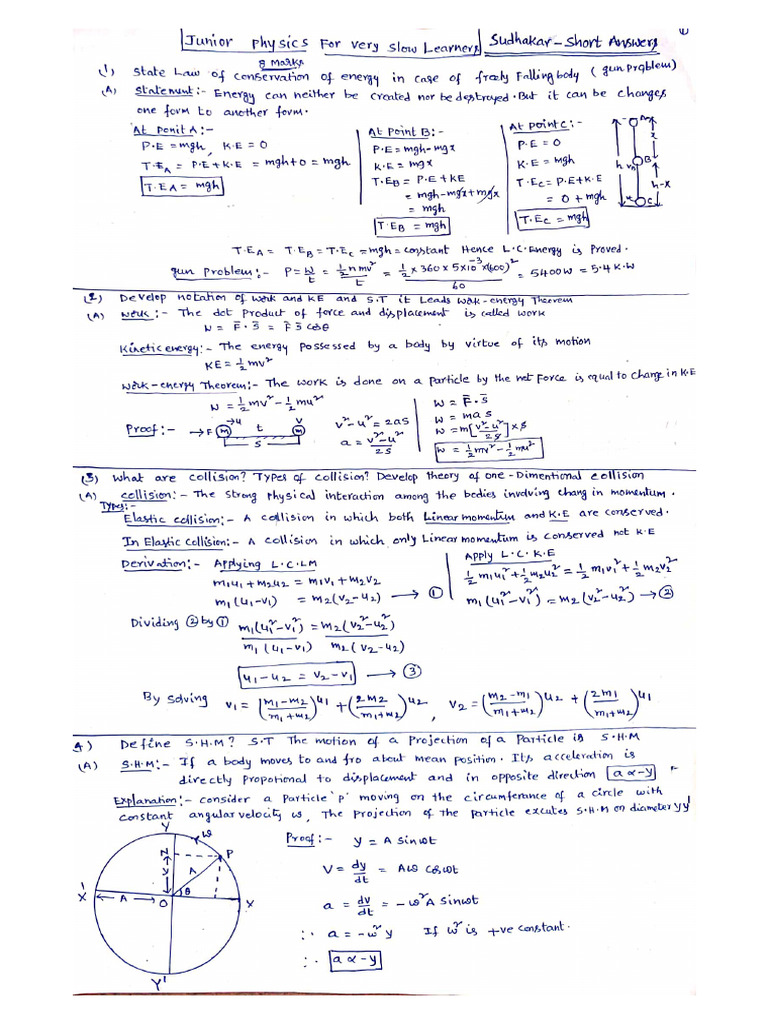 Junior Physics For Very Slow Learners Sudhakar-Short Answers
①
8 Marks
(1) State Law of conservation of energy in case of freely Falling body (gun problem)
(A) Statement:- Energy can neither be created nor be destroyed. But it can be changes
one form to another form.
At Ponit A:-
P.E = mgh, K.E = 0
T.E_A = P.E + K.E = mgh + 0 = mgh
T.E_A = mgh
At Point B:-
P.E = mgh - mgx
K.E = mgx
T.E_B = P.E + KE
= mgh - mgx + mgx
= mgh
T.E_B = mgh
At Point C:-
P.E = 0
K.E = mgh
T.E_C = P.E + K.E
= 0 + mgh
T.E_C = mgh
A
x
B
h
h-x
C
T.E_A = T.E_B = T.E_C = mgh = constant Hence L.C. Energy is Proved.
gun Problem:- P = W/t = ½nmv²/t = ½ × 360 × 5×10⁻³ × (600)²/60 = 5400W = 5.4 K.W
(2) Develop notation of work and KE and S.T it Leads work-energy Theorem
(A) Work:- The dot Product of force and displacement is called work
W = F̄·S̄ = F̄ S̄ cosθ
Kinetic energy:- The energy possessed by a body by virtue of its motion
KE = ½mv²
Work-energy Theorem:- The work is done on a particle by the net Force is equal to change in K.E
W = ½mv² - ½mu²
Proof:- → F m →u t m V
S
v² - u² = 2as
a = v² - u²/2S
W = F̄·S̄
W = mas
W = m[v² - u²/2S] × S
W = ½mv² - ½mu²
(3) What are collision? Types of collision? Develop theory of one-Dimentional collision
(A) collision:- The strong physical interaction among the bodies involving chang in momentum.
Types:-
Elastic collision:- A collision in which both Linear momentum and K.E are conserved.
In Elastic collision:- A collision in which only Linear momentum is conserved not K.E
Derivation:- Applying L.C.LM
m₁u₁ + m₂u₂ = m₁v₁ + m₂v₂
m₁(u₁ - v₁) = m₂(v₂ - u₂) → ①
Apply L.C.K.E
½m₁u₁² + ½m₂u₂² = ½m₁v₁² + ½m₂v₂²
m₁(u₁² - v₁²) = m₂(v₂² - u₂²) → ②
Dividing ② by ① m₁(u₁² - v₁²)/m₁(u₁ - v₁) = m₂(v₂² - u₂²)/m₂(v₂ - u₂)
u₁ - u₂ = v₂ - v₁ → ③
By solving v₁ = (m₁ - m₂/m₁ + m₂)u₁ + (2m₂/m₁ + m₂)u₂, v₂ = (m₂ - m₁/m₁ + m₂)u₂ + (2m₁/m₁ + m₂)u₁
4) Define S.H.M? S.T The motion of a Projection of a Particle is S.H.M
(A) S.H.M:- If a body moves to and fro about mean position. Its acceleration is
directly propotional to displacement and in opposite direction a α -y
Explanation:- consider a Particle 'P' moving on the circumferance of a circle with
constant angular velocity ω, The projection of the particle excutes S.H.M on diameter YY'
Y
ω
N
P
y
A
θ
X'
A
O
X
Y'
Proof:- y = A sinωt
V = dy/dt = Aω cosωt
a = dv/dt = -ω²A sinωt
∴ a = -ω²y If ω² is +ve constant.
∴ a α -y